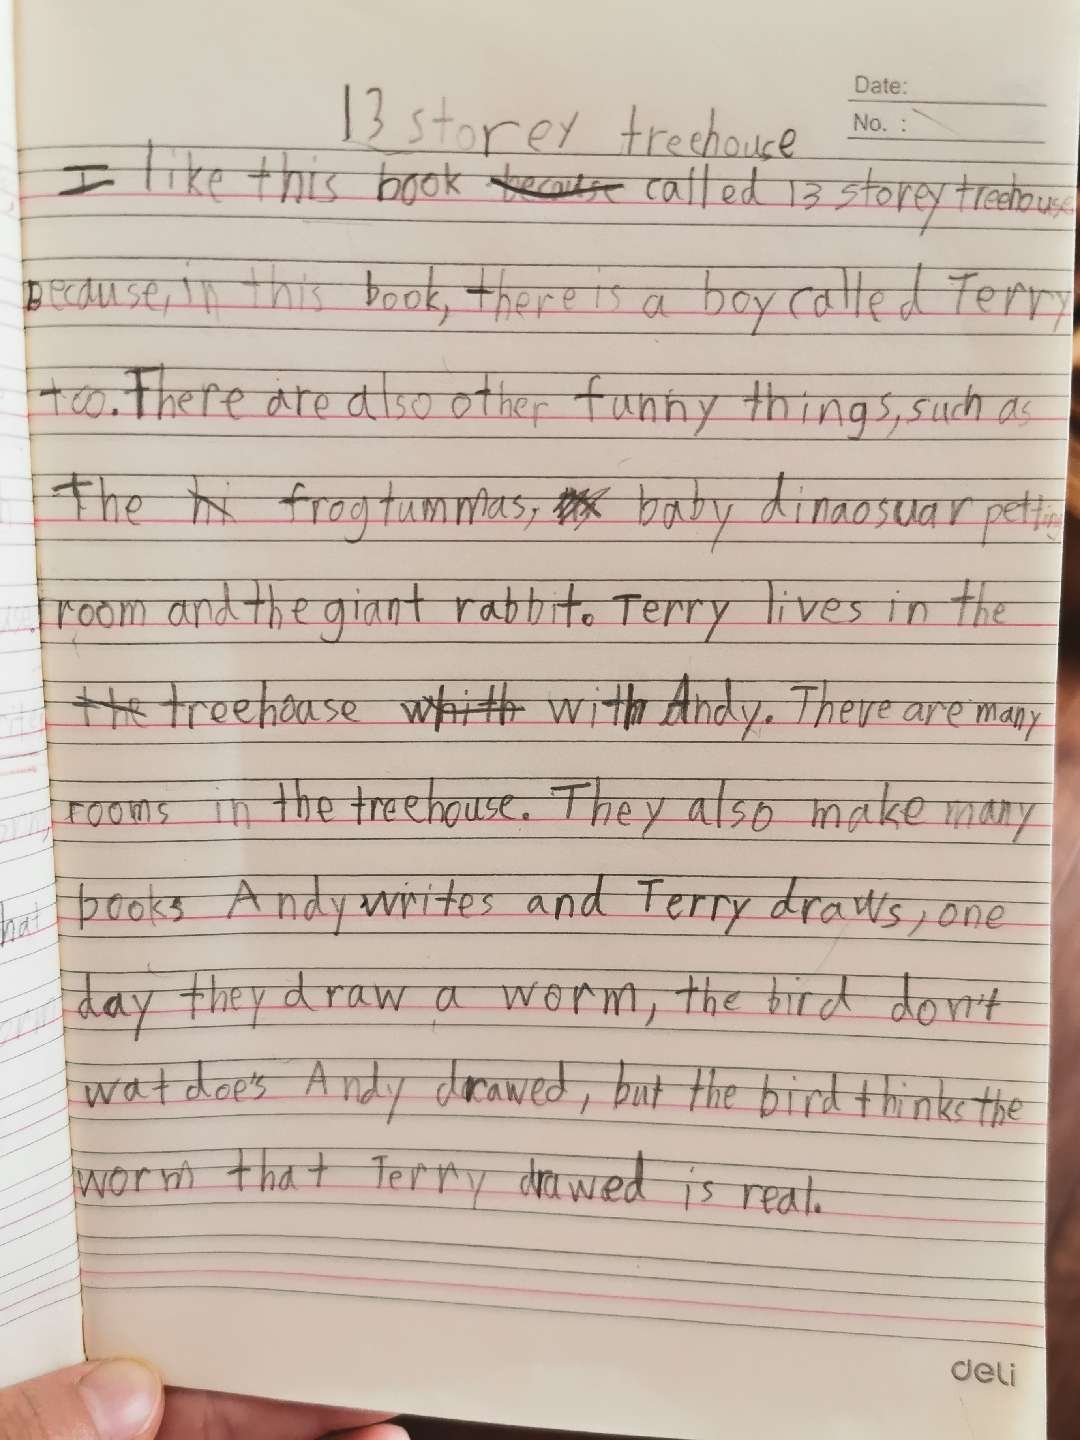 Date:
No. :
13 storey treehouse
I like this book because called 13 storey treehouse
Because, in this book, there is a boy called Terry
too. There are also other funny things, such as
the hi frogtummas, baby dinaosuar petting
room and the giant rabbit. Terry lives in the
the treehouse whith with Andy. There are many
rooms in the treehouse. They also make many
books Andy writes and Terry draws, one
day they draw a worm, the bird don't
wat doe's Andy drawed, but the bird thinks the
worm that Terry drawed is real.
deli